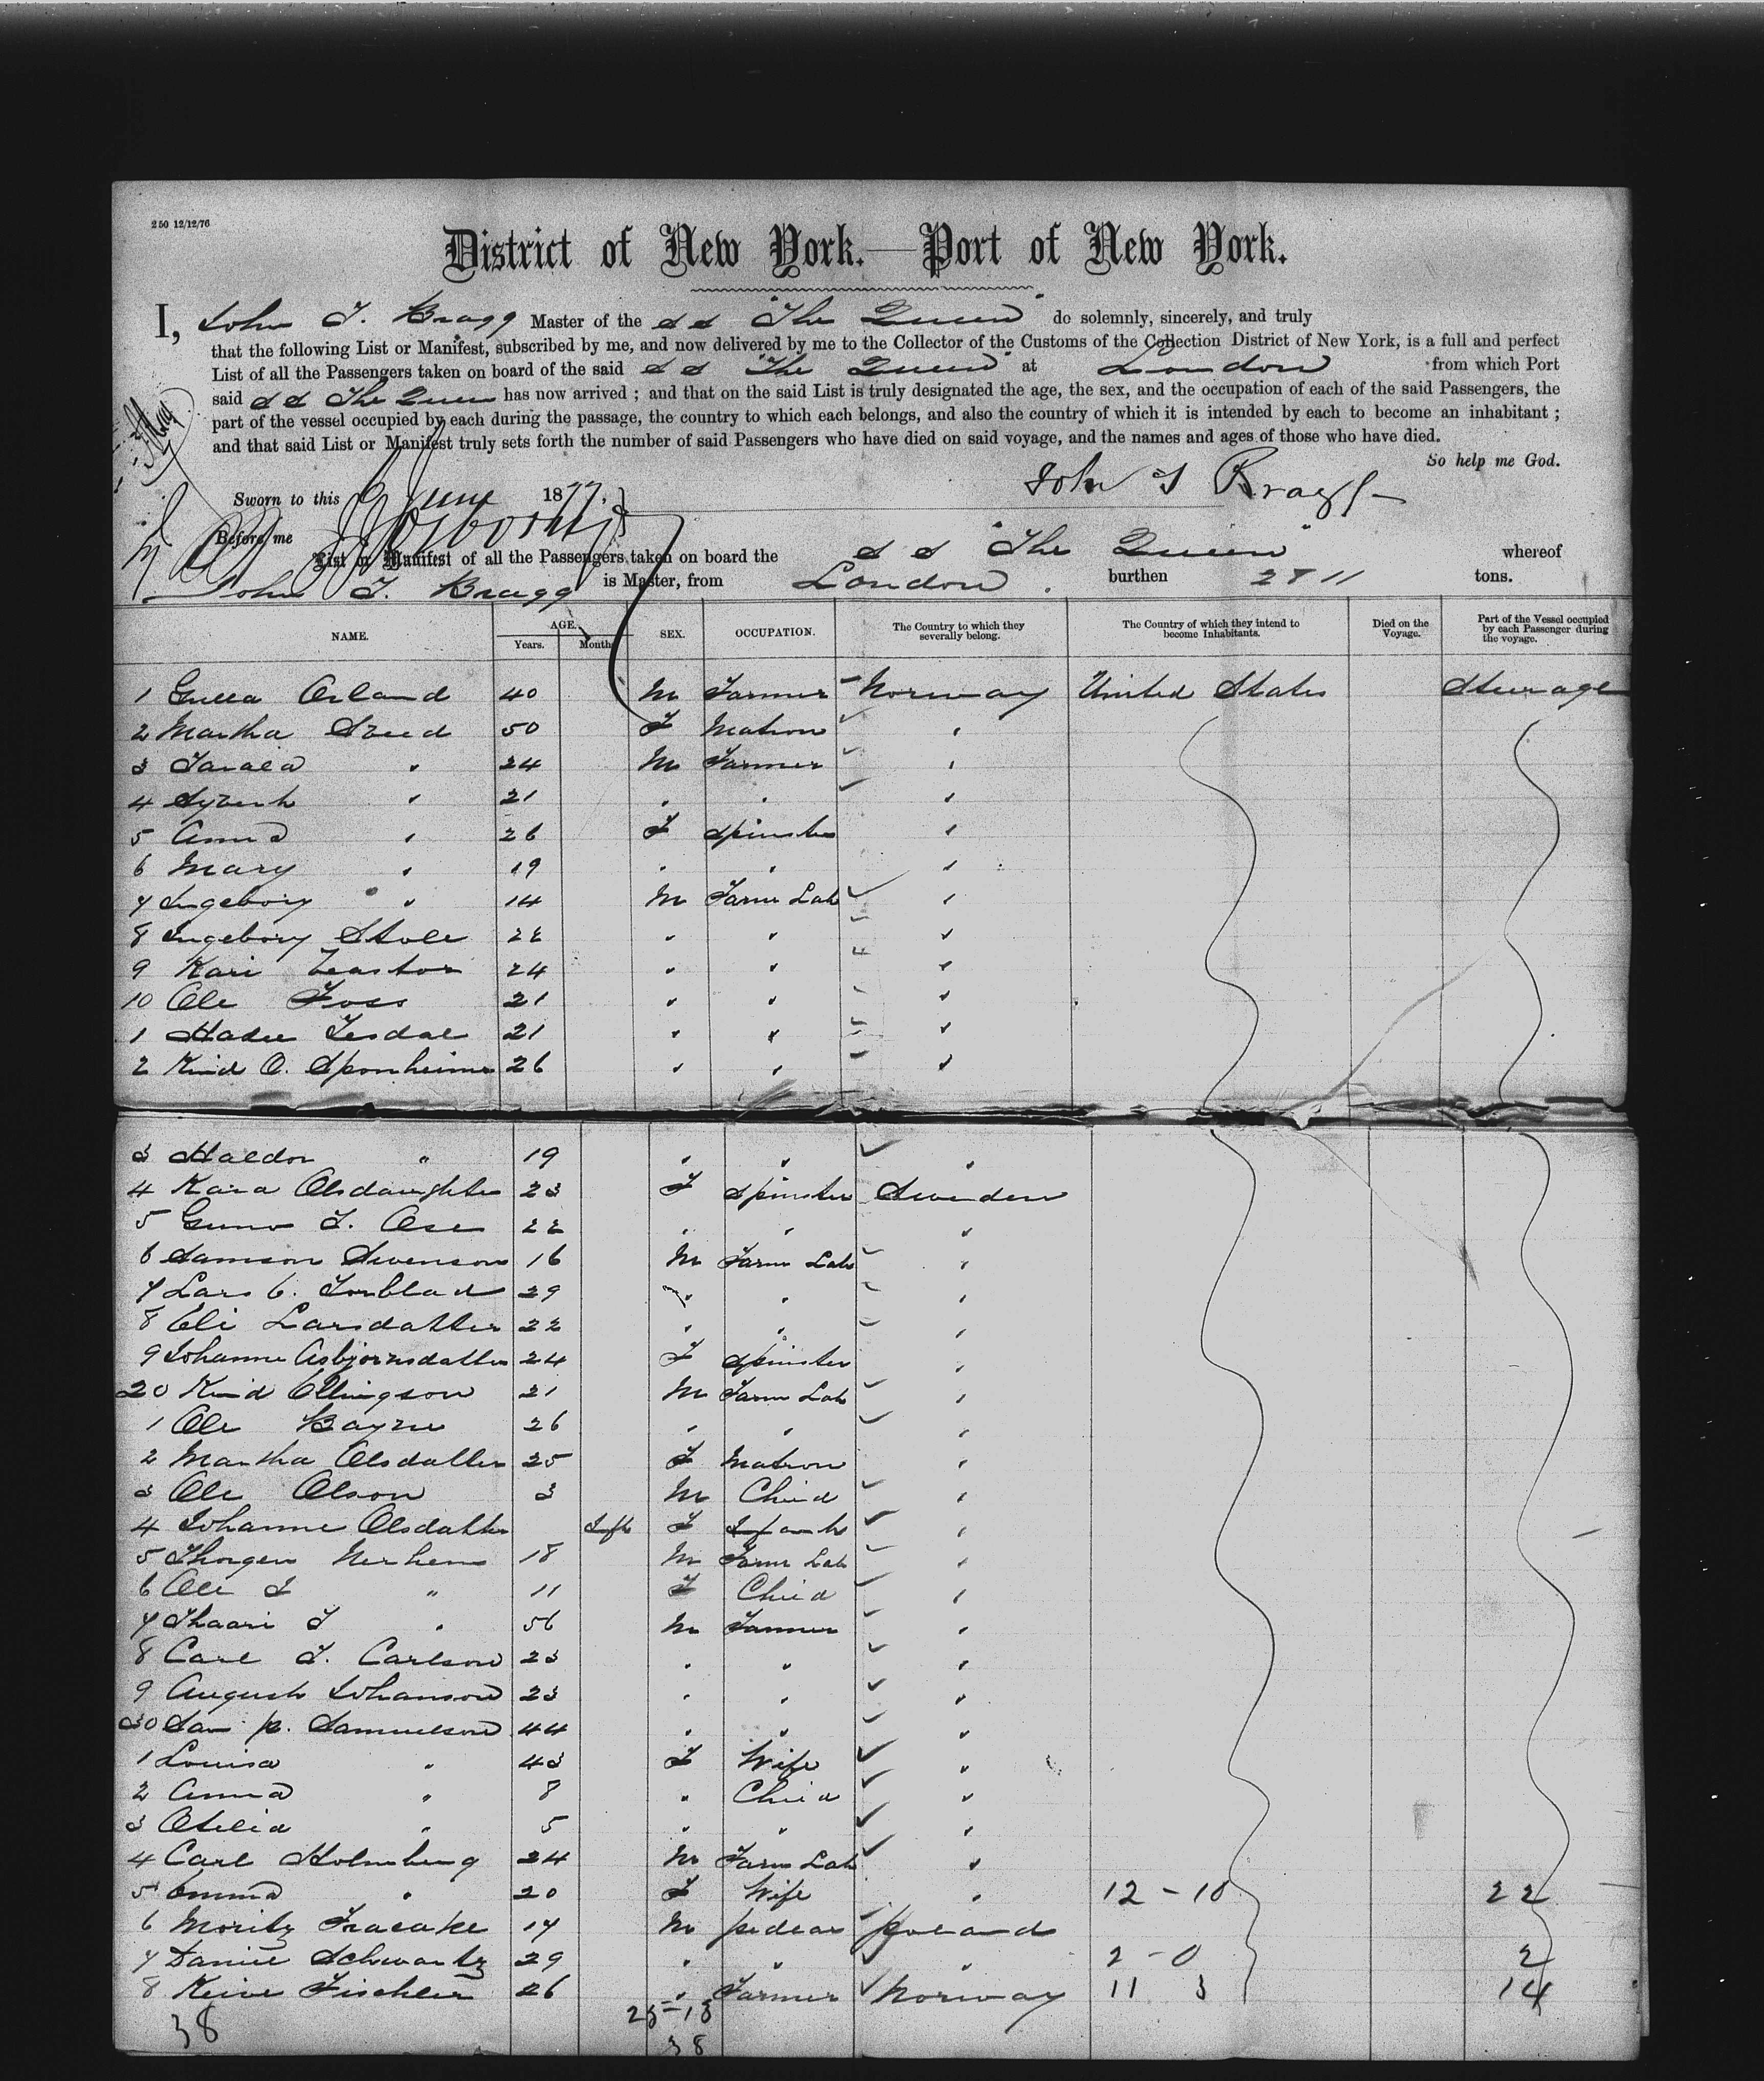 250 12/12/76
District of New York.—Port of New York.
I, John T. Bragg Master of the S S "The Queen" do solemnly, sincerely, and truly
that the following List or Manifest, subscribed by me, and now delivered by me to the Collector of the Customs of the Collection District of New York, is a full and perfect
List of all the Passengers taken on board of the said S S "The Queen" at London from which Port
said S S The Queen has now arrived ; and that on the said List is truly designated the age, the sex, and the occupation of each of the said Passengers, the
part of the vessel occupied by each during the passage, the country to which each belongs, and also the country of which it is intended by each to become an inhabitant ;
and that said List or Manifest truly sets forth the number of said Passengers who have died on said voyage, and the names and ages of those who have died.
So help me God.
John T Bragg
Sworn to this June 1877.
Before me
List or Manifest of all the Passengers taken on board the S S "The Queen" whereof
John T. Bragg is Master, from London. burthen 2811 tons.
NAME. AGE. Years. Months SEX. OCCUPATION. The Country to which they severally belong. The Country of which they intend to become Inhabitants. Died on the Voyage. Part of the Vessel occupied by each Passenger during the voyage.
1 Orland 40 M Farmer Norway United States Steerage
2 Martha 50 F Matron "
3 " 24 M Farmer "
4 " 21 " " "
5 Anna " 26 F Spinster "
6 Mary " 19 " " "
7 Ingeborg " 14 M Farm Lab "
8 Ingeborg Stole 22 " " "
9 Kari 24 " " "
10 Ole Foss 21 " " "
1 Tesdal 21 " " "
2 Knud O. Sponheim 26 " " "
3 Haldor " 19 " " "
4 Kara Olsdaughter 23 F Spinster Sweden
5 T. Ase 22 " " "
6 Samson Swenson 16 M Farm Lab "
7 Lars C. 29 " " "
8 Eli Larsdatter 22 " " "
9 Johanne Asbjornsdatter 24 F Spinster "
20 Knud Ellingson 21 M Farm Lab "
1 Ole 26 " " "
2 Martha Olsdatter 25 F Matron "
3 Ole Olson 3 M Child "
4 Johanne Olsdatter Inft F Infant "
5 Thorgen Nerhem 18 M Farm Lab "
6 Ole " 11 F Child "
7 T " 56 M Farmer "
8 Carl T. Carlson 23 " " "
9 August Johanson 23 " " "
30 p. Samuelson 44 " " "
1 Louisa " 43 F Wife "
2 Anna " 8 " Child "
3 Otilia " 5 " " "
4 Carl Holmberg 24 M Farm Lab "
5 Emma " 20 F Wife " 12 - 10 22
6 Moritz 17 M pedlar poland
7 Daniel Schwartz 29 " " " 2 - 0 2
8 Fischler 26 " Farmer Norway 11 3 14
38 25-13
38